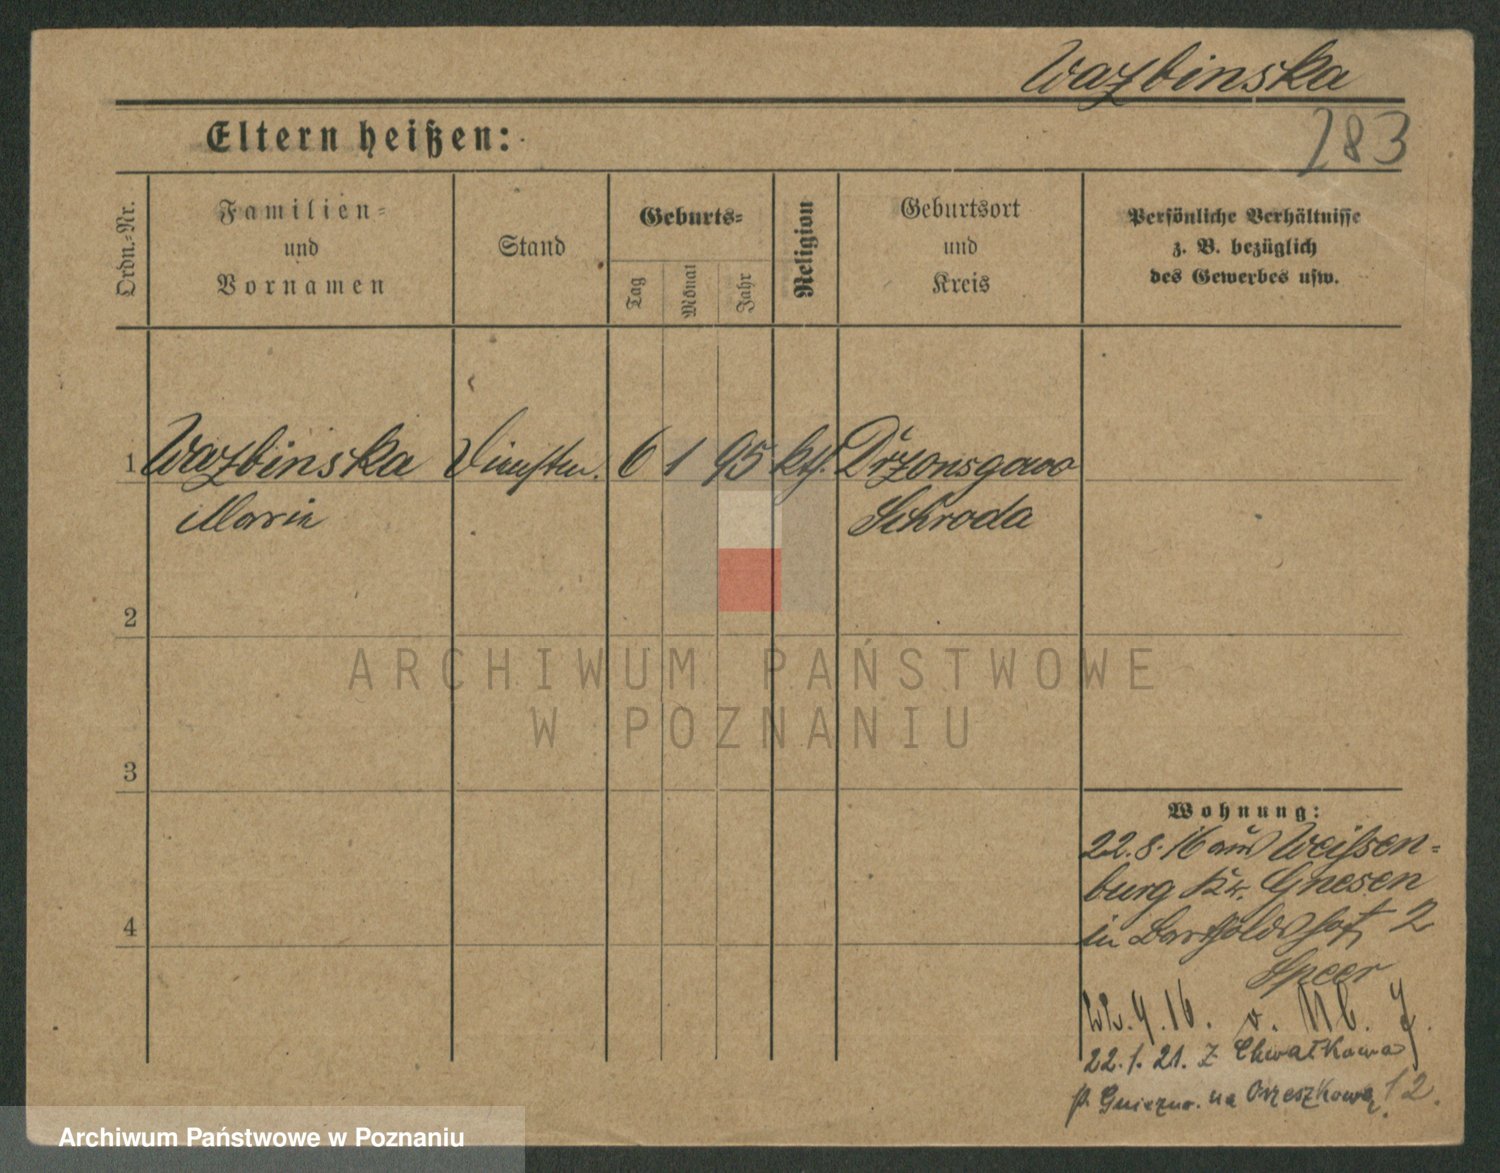 Wazbinska
283
Eltern heißen:
Ordn.-Nr.
Familien-
und
Vornamen
Stand
Geburts-
Tag
Monat
Jahr
Religion
Geburtsort
und
Kreis
Persönliche Verhältnisse
z. B. bezüglich
des Gewerbes usw.
1 Wazbinska 6 1 95 kth. Drzonsgowo
Marie Schroda
2
3
4
Wohnung:
22.8.16 aus Weissen-
burg Kr. Gnesen
in Bartholdshof 2
Speer
22.1.21. z Chwałkowa
p. Gniezno. na Orzeszkowej 12.
ARCHIWUM PAŃSTWOWE
W POZNANIU
Archiwum Państwowe w Poznaniu